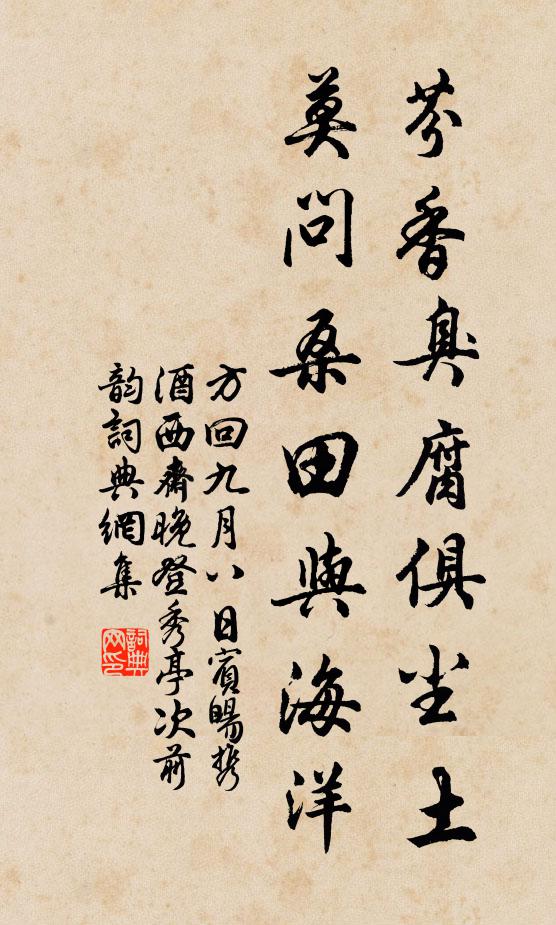 芬香臭腐俱尘土
莫問桑田與海洋
方回九月八日賓暘携
酒西齋晚登秀亭次前
韵詞典網集
詞典网印